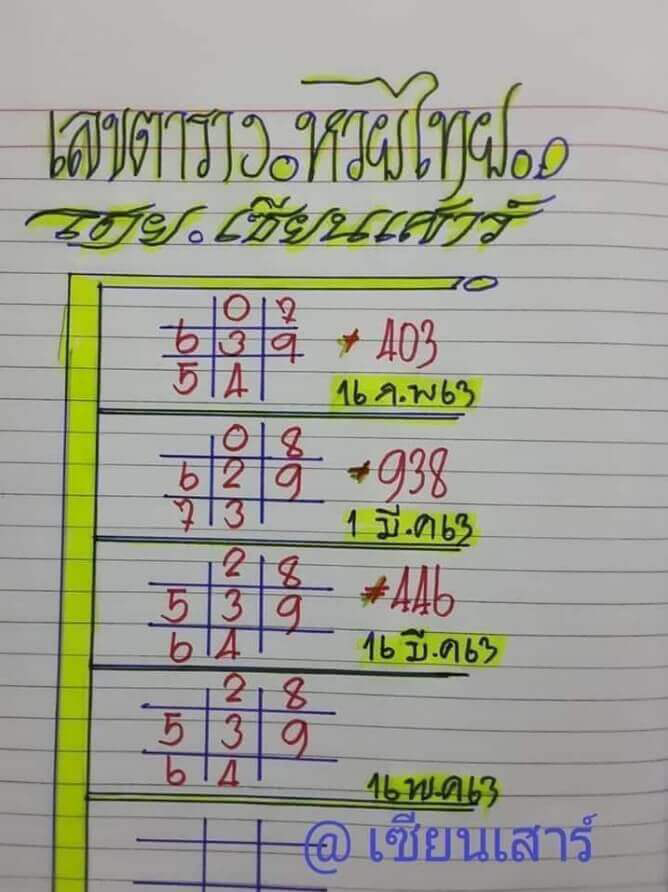 เลขตาราง.หวยไทย..
โดย.เซียนเสาร์
0 7
6 3 9 * 403
5 4 16 ก.พ63
0 8
6 2 9 * 938
7 3 1 มี.ค63
2 8
5 3 9 * 446
6 4 16 มี.ค63
2 8
5 3 9
6 4 16 พ.ค63
@ เซียนเสาร์